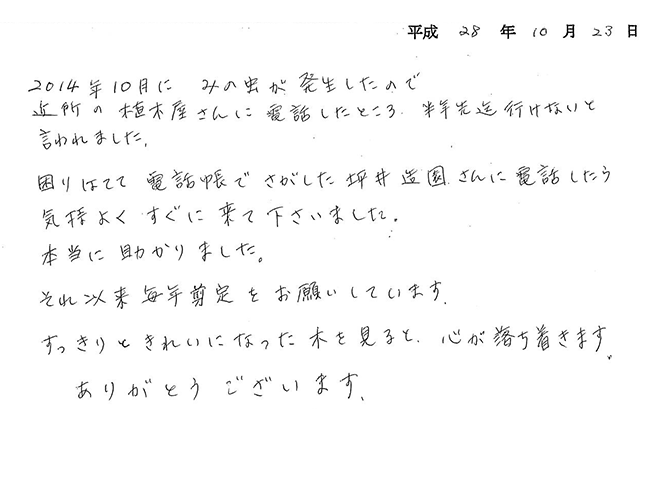 平成 28 年 10 月 23 日
2014年10月に みの虫が 発生したので
近所の 植木屋さんに 電話したところ、半年先迄 行けないと
言われました。
困りはてて 電話帳で さがした 坪井造園さんに 電話したら
気持よく すぐに 来て 下さいました。
本当に 助かりました。
それ以来 毎年剪定を お願いしています。
すっきりと きれいになった 木を 見ると、心が 落ち着きます。
ありがとう ございます。